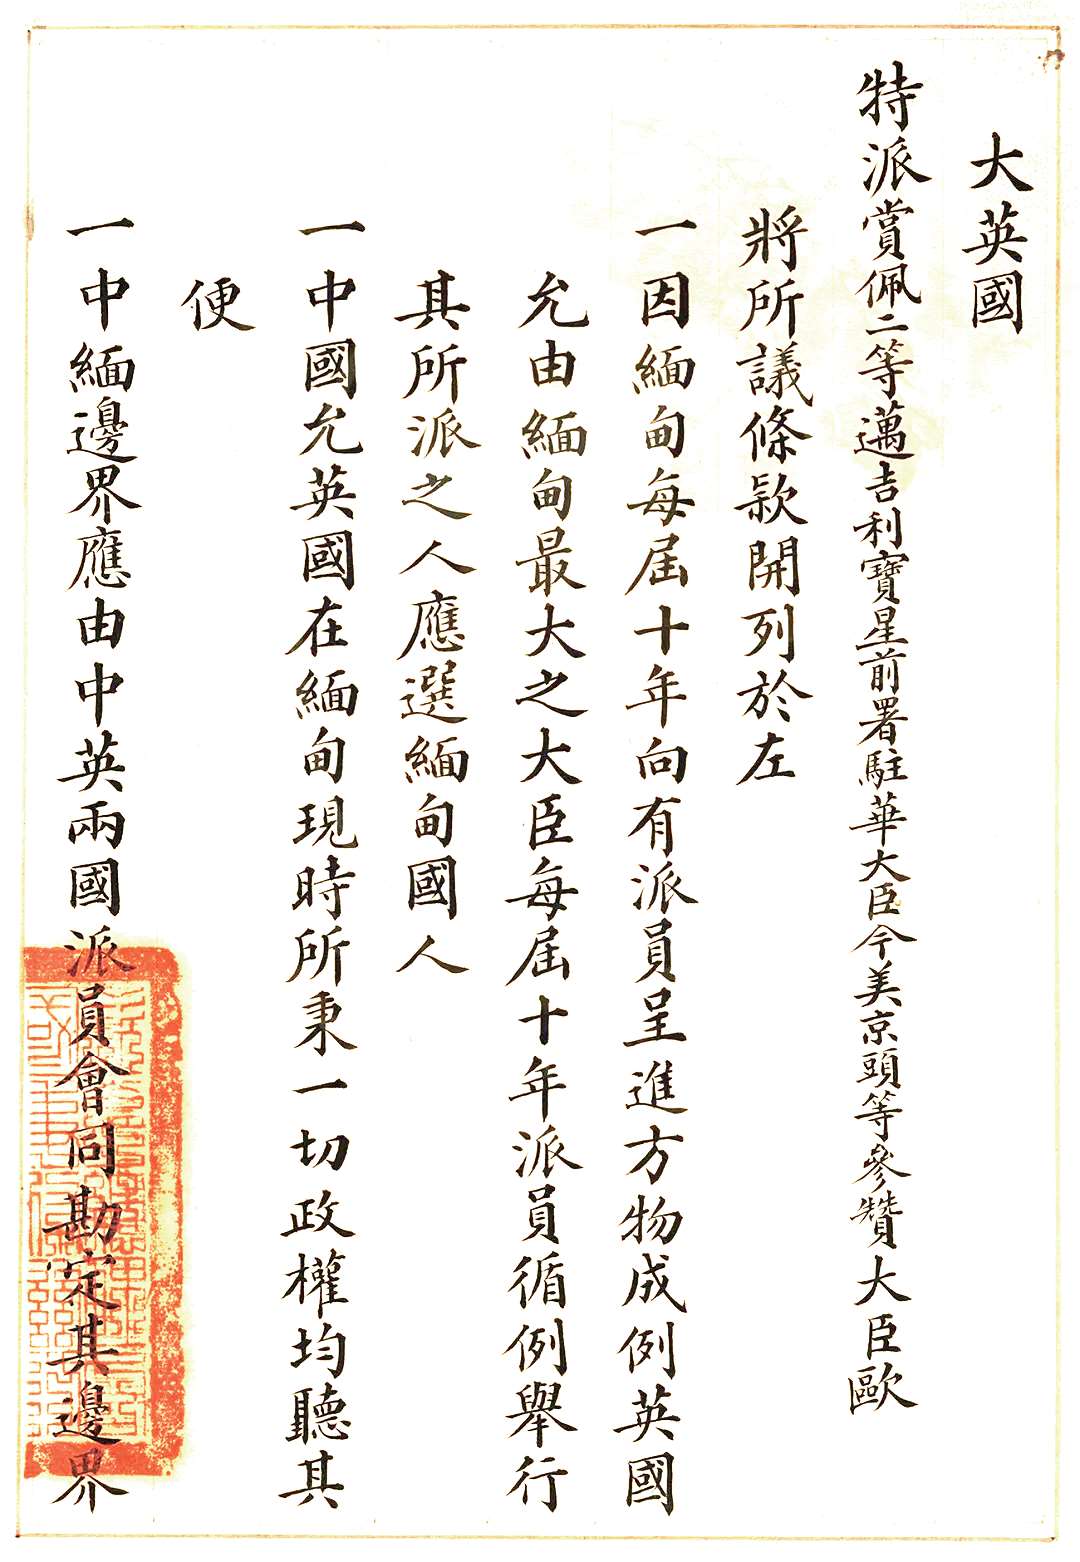 大英國
特派賞佩二等邁吉利寶星前署駐華大臣今美京頭等參贊大臣歐
將所議條款開列於左
一因緬甸每屆十年向有派員呈進方物成例英國
允由緬甸最大之大臣每屆十年派員循例舉行
其所派之人應選緬甸國人
一中國允英國在緬甸現時所秉一切政權均聽其
便
一中緬邊界應由中英兩國派員會同勘定其邊界